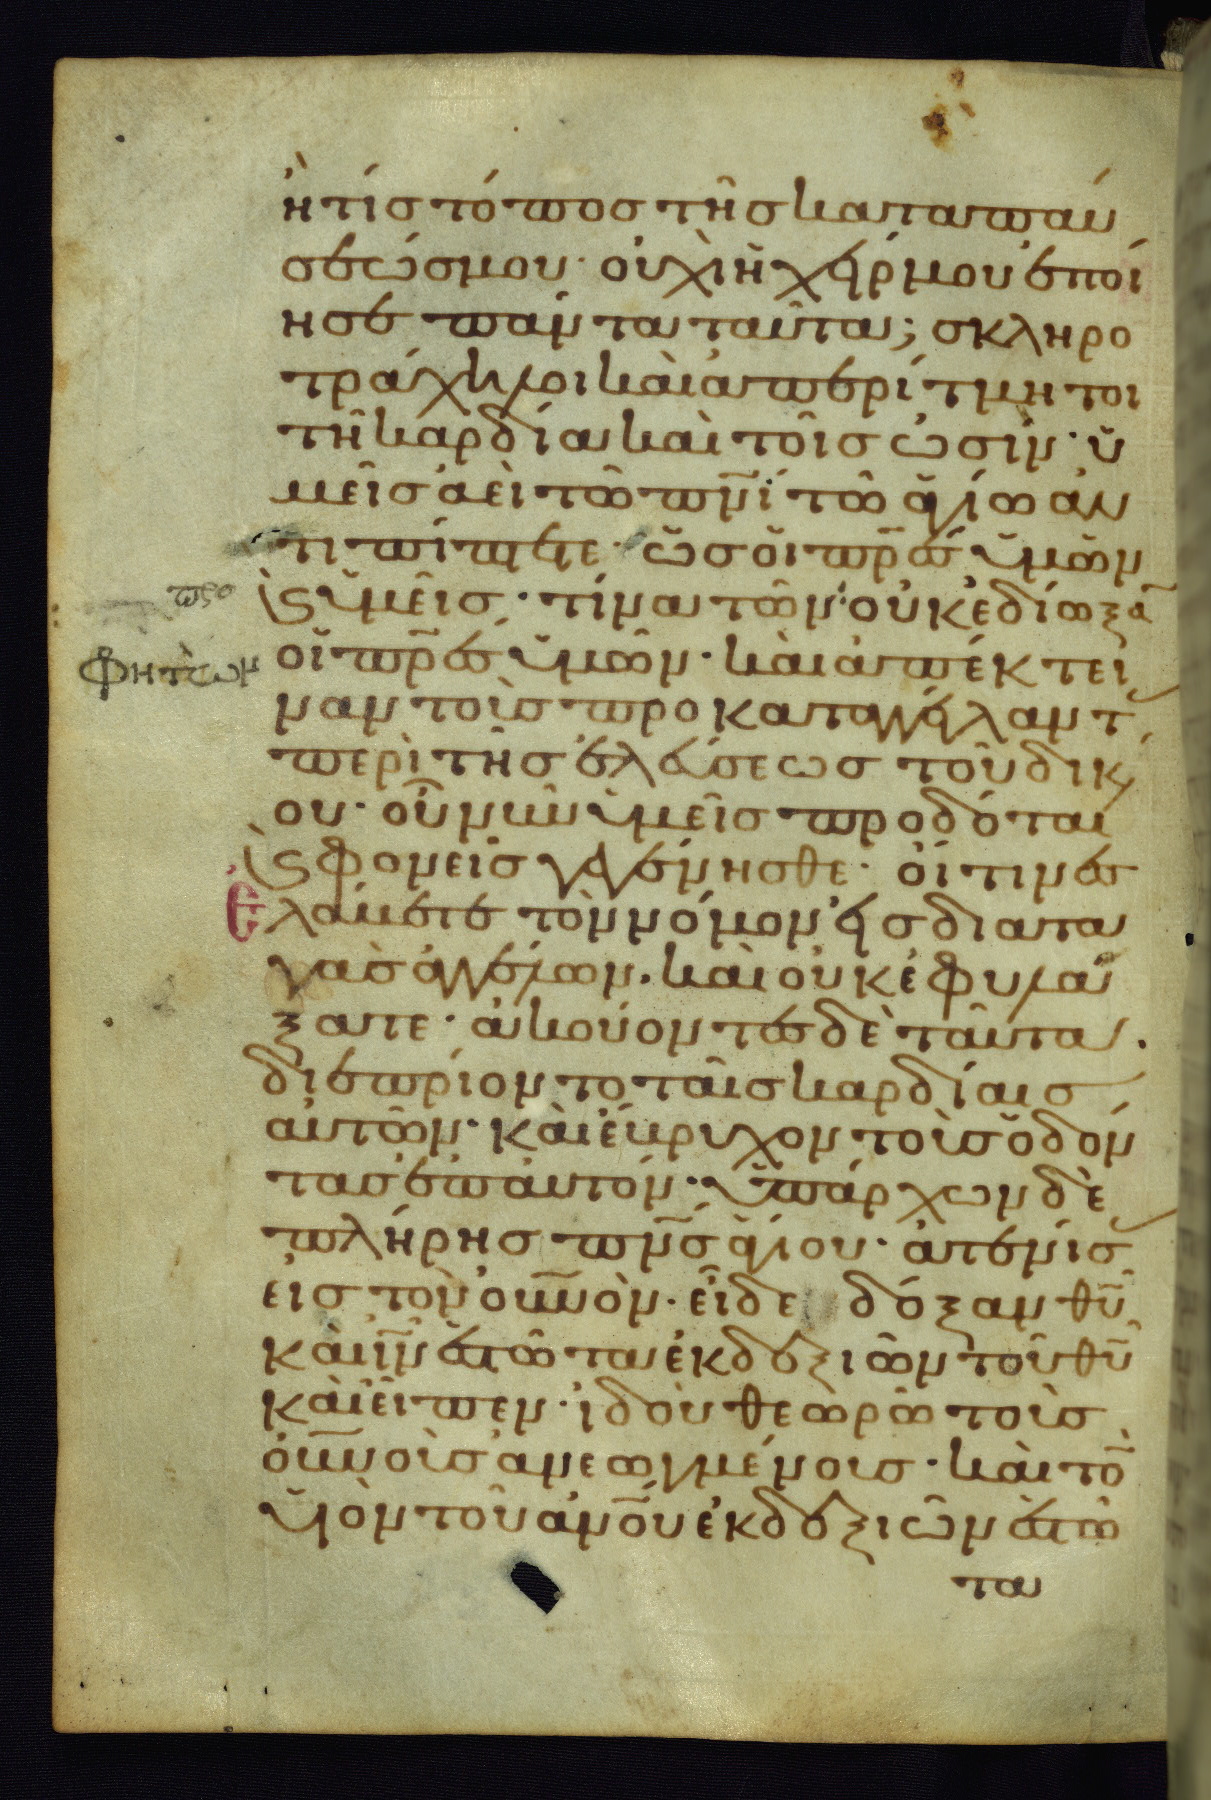 ἢ τίσ τόποσ τῆσ καταπαύ
σεώσ μου· οὐχὶ ἡ χείρ μου ἐποί
ησε πάντα ταῦτα; σκληρο
τράχηλοι καὶ ἀπερίτμητοι
τῆ καρδία καὶ τοῖσ ὠσίν· ὑ
μεῖσ ἀεὶ τῶ πνῑ τῶ ἁγίω ἀν
τιπίπτετε· ὡσ οἱ πρ̅εσ ὑμῶν
ϗ ὑμεῖσ· τίνα τῶν οὐκ ἐδίωξαν
προ
φητῶν
οἱ πρ̅εσ ὑμῶν· καὶ ἀπέκτει
ναν τοὺσ προκαταγγείλαντ
περὶ τῆσ ἐλεύσεωσ τοῦ δικαί
ου· οὗ νῦν ὑμεῖσ προδόται
ϗ φονεῖσ γεγένησθε· οἵτινεσ
ἐλάβετε τὸν νόμον εἰσ διατα
γὰσ ἀγγέλων. καὶ οὐκ ἐφυλά
ξατε· ἀκούοντεσ δὲ ταῦτα.
διεπρίοντο ταῖσ καρδίαισ
αὐτῶν· καὶ ἔβρυχον τοὺσ ὀδόν
τασ ἐπ αὐτόν· ὑπάρχων δὲ
πλήρησ πν̅σ ἁγίου· ἀτενίσ
εἰσ τὸν οὐν̅ὸν· εἶδε δόξαν θῡ
καὶ ῑν ἑστῶτα ἐκ δεξιῶν τοῦ θῡ
καὶ εἶπεν· ἰδοὺ θεωρῶ τοὺσ
οὐν̅οὺσ ἀνεωγμένουσ· καὶ τὸν
υἱὸν τοῦ ἀν̅ου ἐκ δεξιῶν ἑστῶ
τα